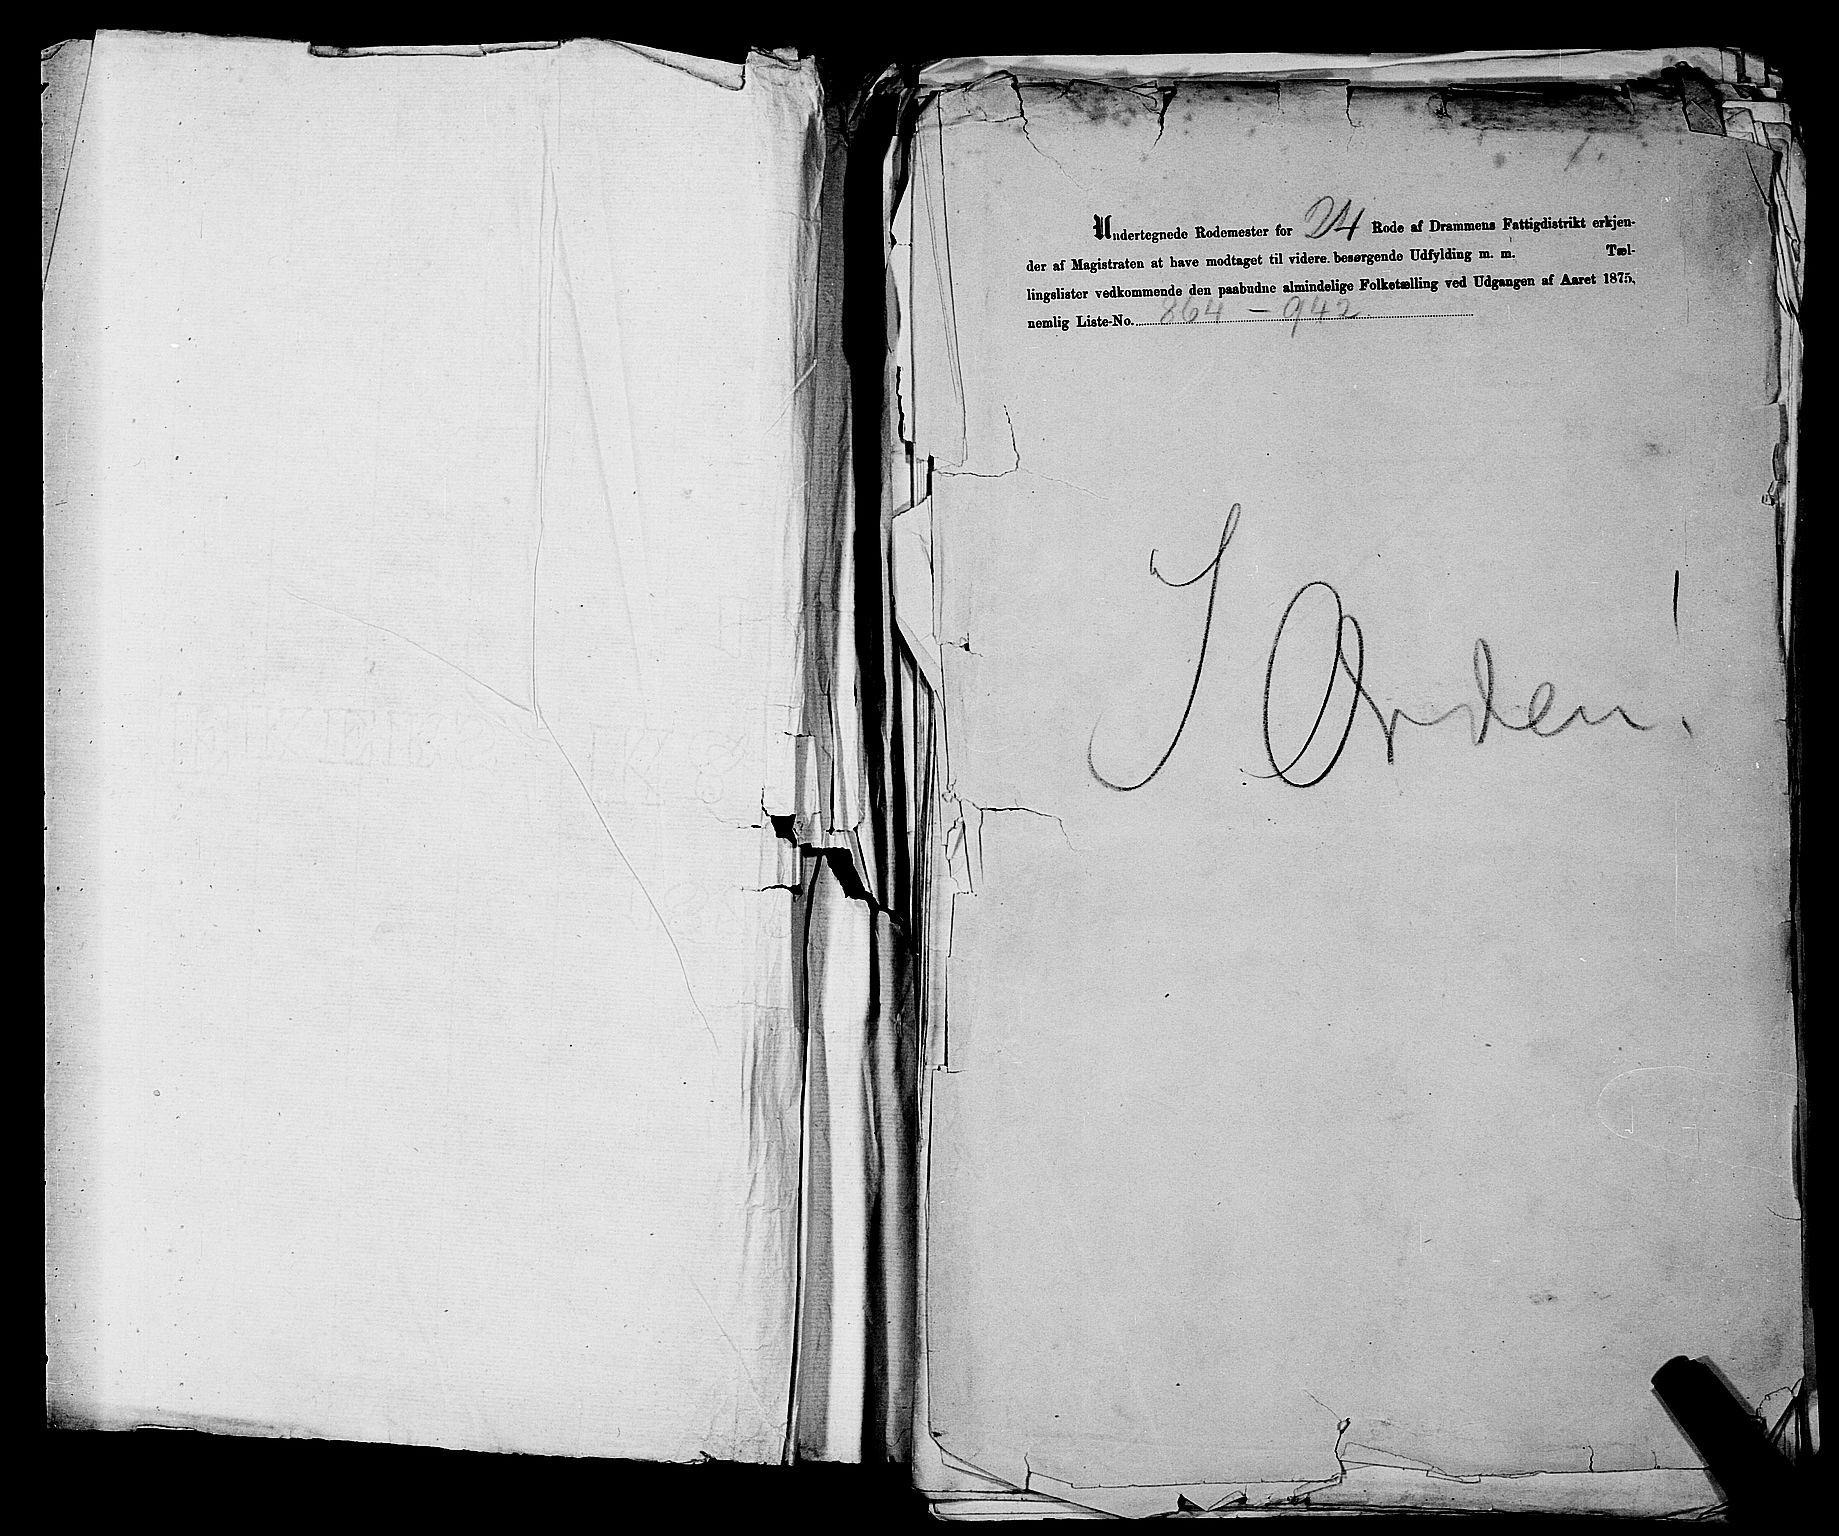 Undertegnede Rodemester for 24 Rode af Drammens Fattigdistrikt erkjen-
der af Magistraten at have modtaget til videre besørgende Udfylding m. m. Tæl-
lingslister vedkommende den paabudne almindelige Folketælling ved Udgangen af Aaret 1875,
nemlig Liste-No. 864 – 942
I Orden!